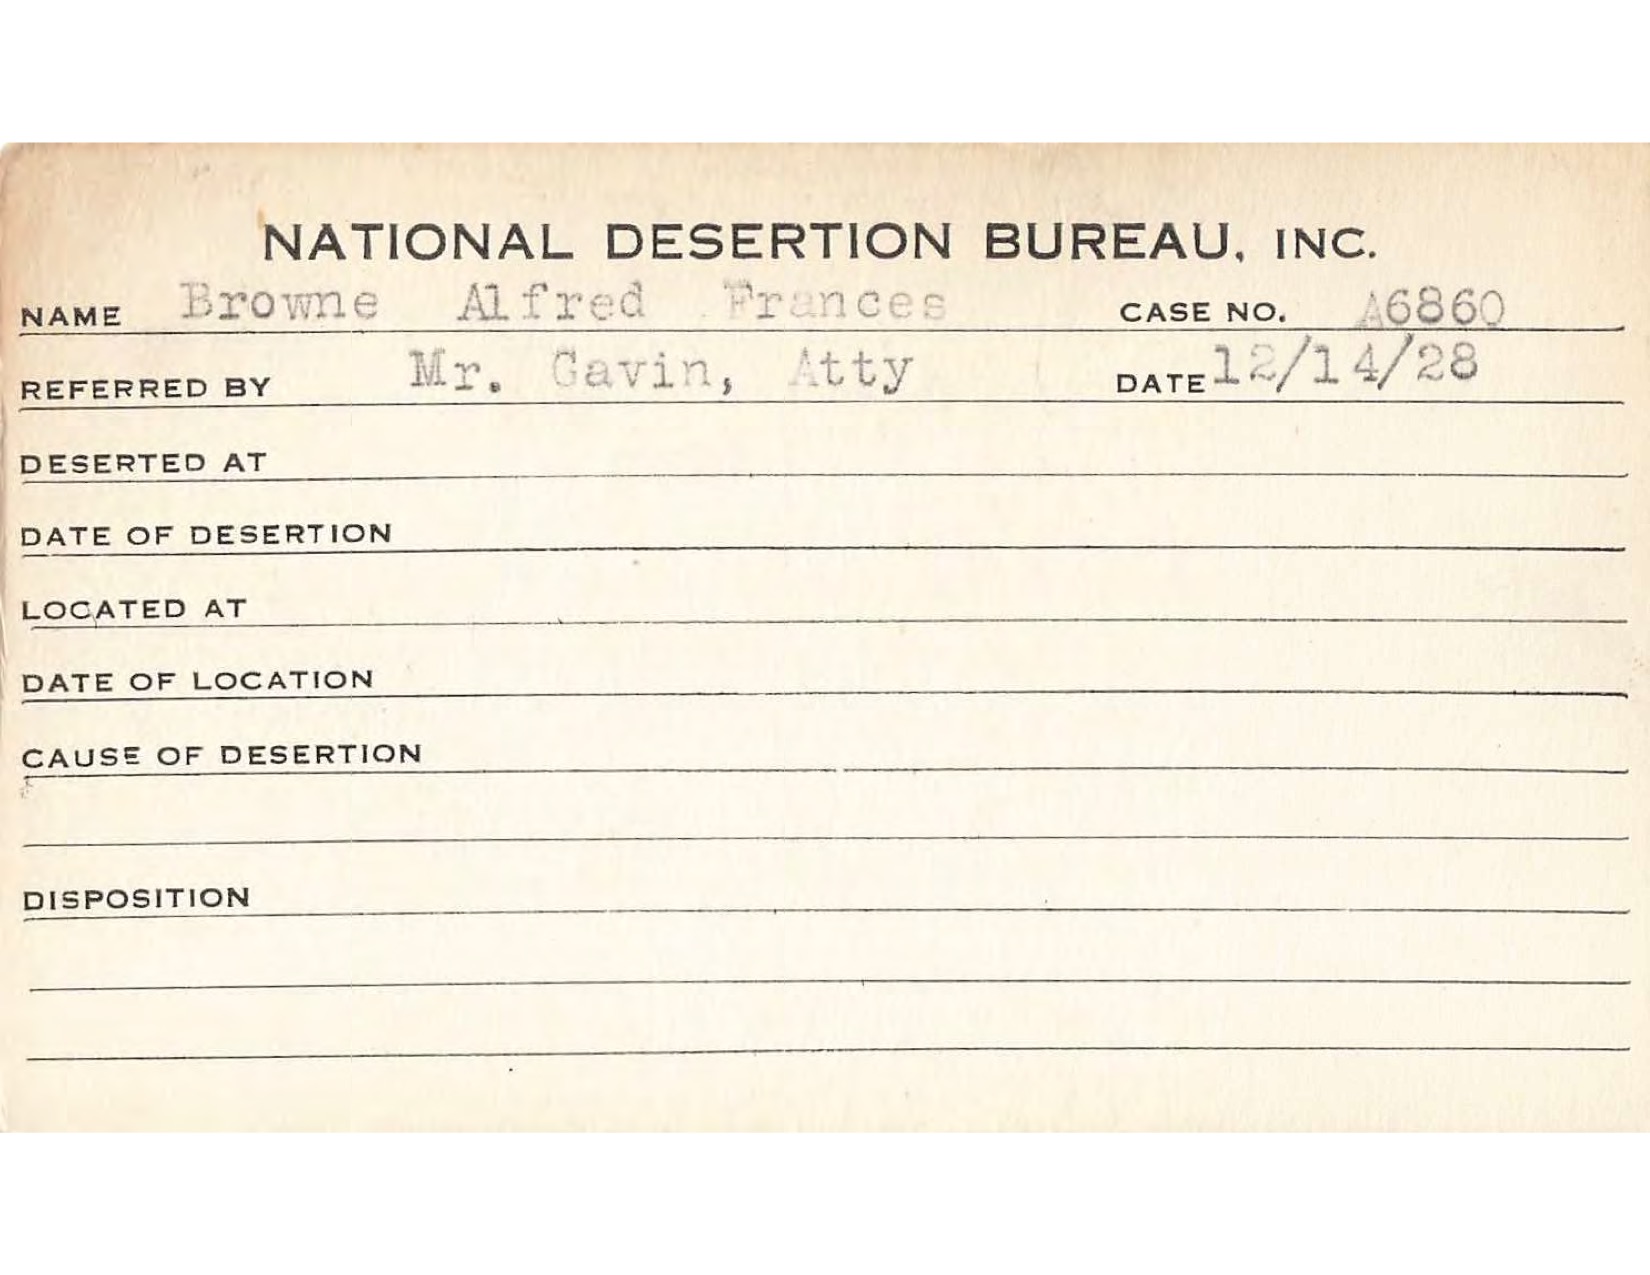 NATIONAL DESERTION BUREAU, INC.
NAME Browne Alfred Frances CASE NO. A6860
REFERRED BY Mr. Gavin, Atty DATE 12/14/28
DESERTED AT
DATE OF DESERTION
LOCATED AT
DATE OF LOCATION
CAUSE OF DESERTION
DISPOSITION